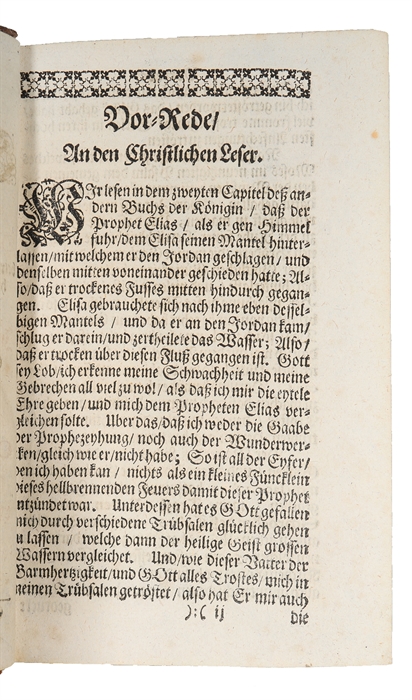 Vor-Rede/
An den Christlichen Leser.
WIr lesen in dem zweyten Capitel deß an-
dern Buchs der Königin / daß der
Prophet Elias / als er gen Himmel
fuhr/dem Elisa seinen Mantel hinter-
lassen/mit welchem er den Jordan geschlagen / und
denselben mitten voneinander geschieden hatte; Al-
so/daß er trockenes Fusses mitten hindurch gegan-
gen. Elisa gebrauchete sich nach ihme eben dessel-
bigen Mantels / und da er an den Jordan kam/
schlug er darein/und zertheilete das Wasser; Also/
daß er trocken über diesen Fluß gegangen ist. Gott
sey Lob/ich erkenne meine Schwachheit und meine
Gebrechen all viel zu wol/ als daß ich mir die eytele
Ehre geben / und mich dem Propheten Elias ver-
gleichen solte. Uber das/daß ich weder die Gaabe
der Prophezeyhung/ noch auch der Wunderwer-
ken/gleich wie er/nicht habe; So ist all der Eyfer/
den ich haben kan / nichts als ein kleines Füncklein
dieses hellbrennenden Feuers damit dieser Prophet
entzündet war. Unterdessen hat es GOtt gefallen
mich durch verschiedene Trübsalen glücklich gehen
zu lassen / welche dann der heilige Geist grossen
Wassern vergleichet. Und/wie dieser Vatter der
Barmhertzigkeit/und GOtt alles Trostes/mich in
meinen Trübsalen getröstet / also hat Er mir auch
):( ij die